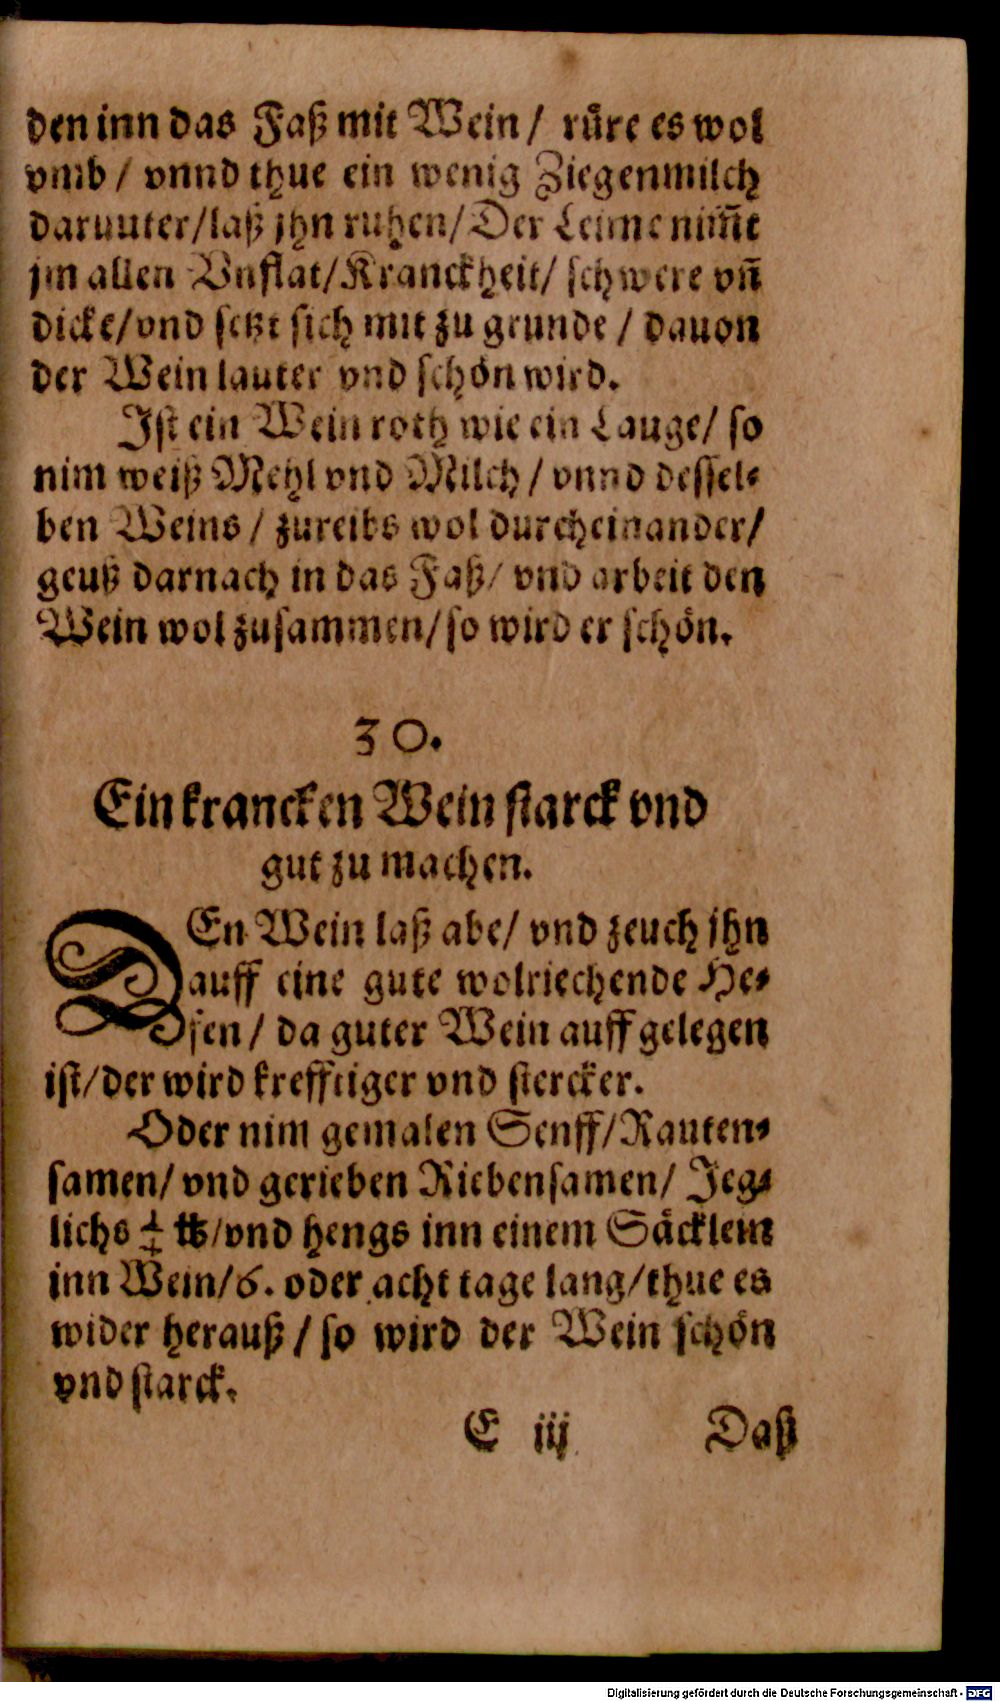 den inn das Faß mit Wein / rüre es wol
vmb / vnnd thue ein wenig Ziegenmilch
darunter/laß jhn ruhen/Der Leime nim̃t
jm allen Vnflat/Kranckheit/ schwere vñ
dicke/vnd setzt sich mit zu grunde / dauon
der Wein lauter vnd schön wird.
Ist ein Wein roth wie ein Lauge/ so
nim weiß Mehl vnd Milch / vnnd dessel-
ben Weins / zureibs wol durcheinander/
geuß darnach in das Faß/ vnd arbeit den
Wein wol zusammen/so wird er schön.
30.
Ein krancken Wein starck vnd
gut zu machen.
DEn Wein laß abe/ vnd zeuch jhn
auff eine gute wolriechende He-
fen/ da guter Wein auff gelegen
ist/der wird krefftiger vnd stercker.
Oder nim gemalen Senff/Rauten-
samen/ vnd gerieben Riebensamen/ Jeg-
lichs ¼ ℔/vnd hengs inn einem Säcklein
inn Wein/6. oder acht tage lang/thue es
wider herauß / so wird der Wein schön
vnd starck.
E iij Daß
Digitalisierung gefördert durch die Deutsche Forschungsgemeinschaft - DFG